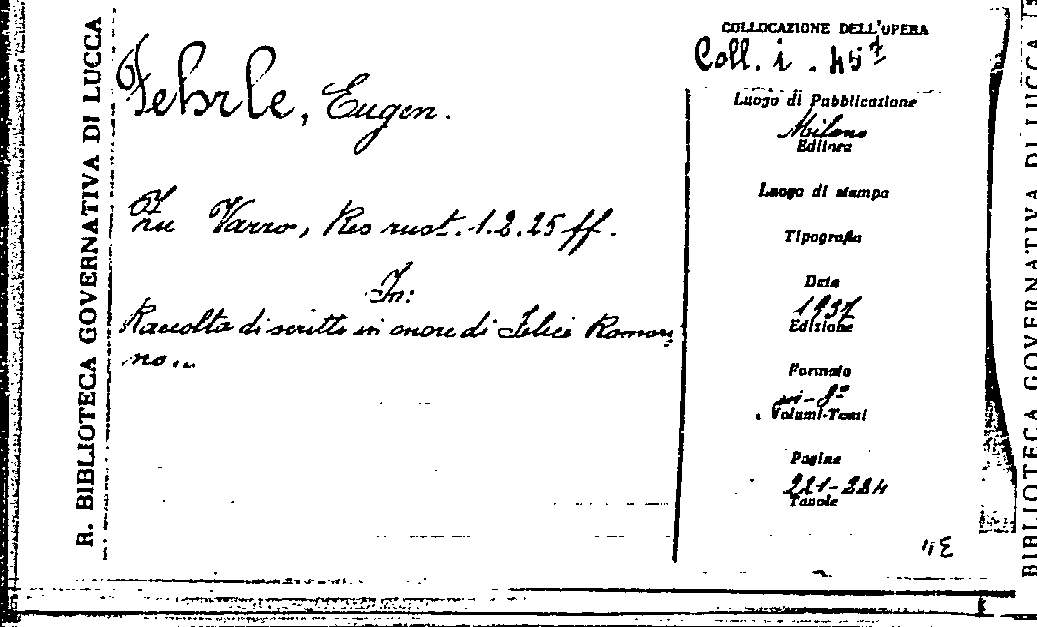 R. BIBLIOTECA GOVERNATIVA DI LUCCA
Fehrle, Eugen.
Zu Varro, Res rust. 1.2.25 ff.
In:
Raccolta di scritti in onore di Felice Ramori
no...
COLLOCAZIONE DELL'OPERA
Coll. i . 45⁷
Luogo di Pubblicazione
Milano
Editore
Luogo di stampa
Tipografia
Data
1937
Edizione
Formato
in-8º
Volumi-Tomi
Pagine
221-224
Tavole
BIBLIOTECA GOVERNATIVA DI LUCCA